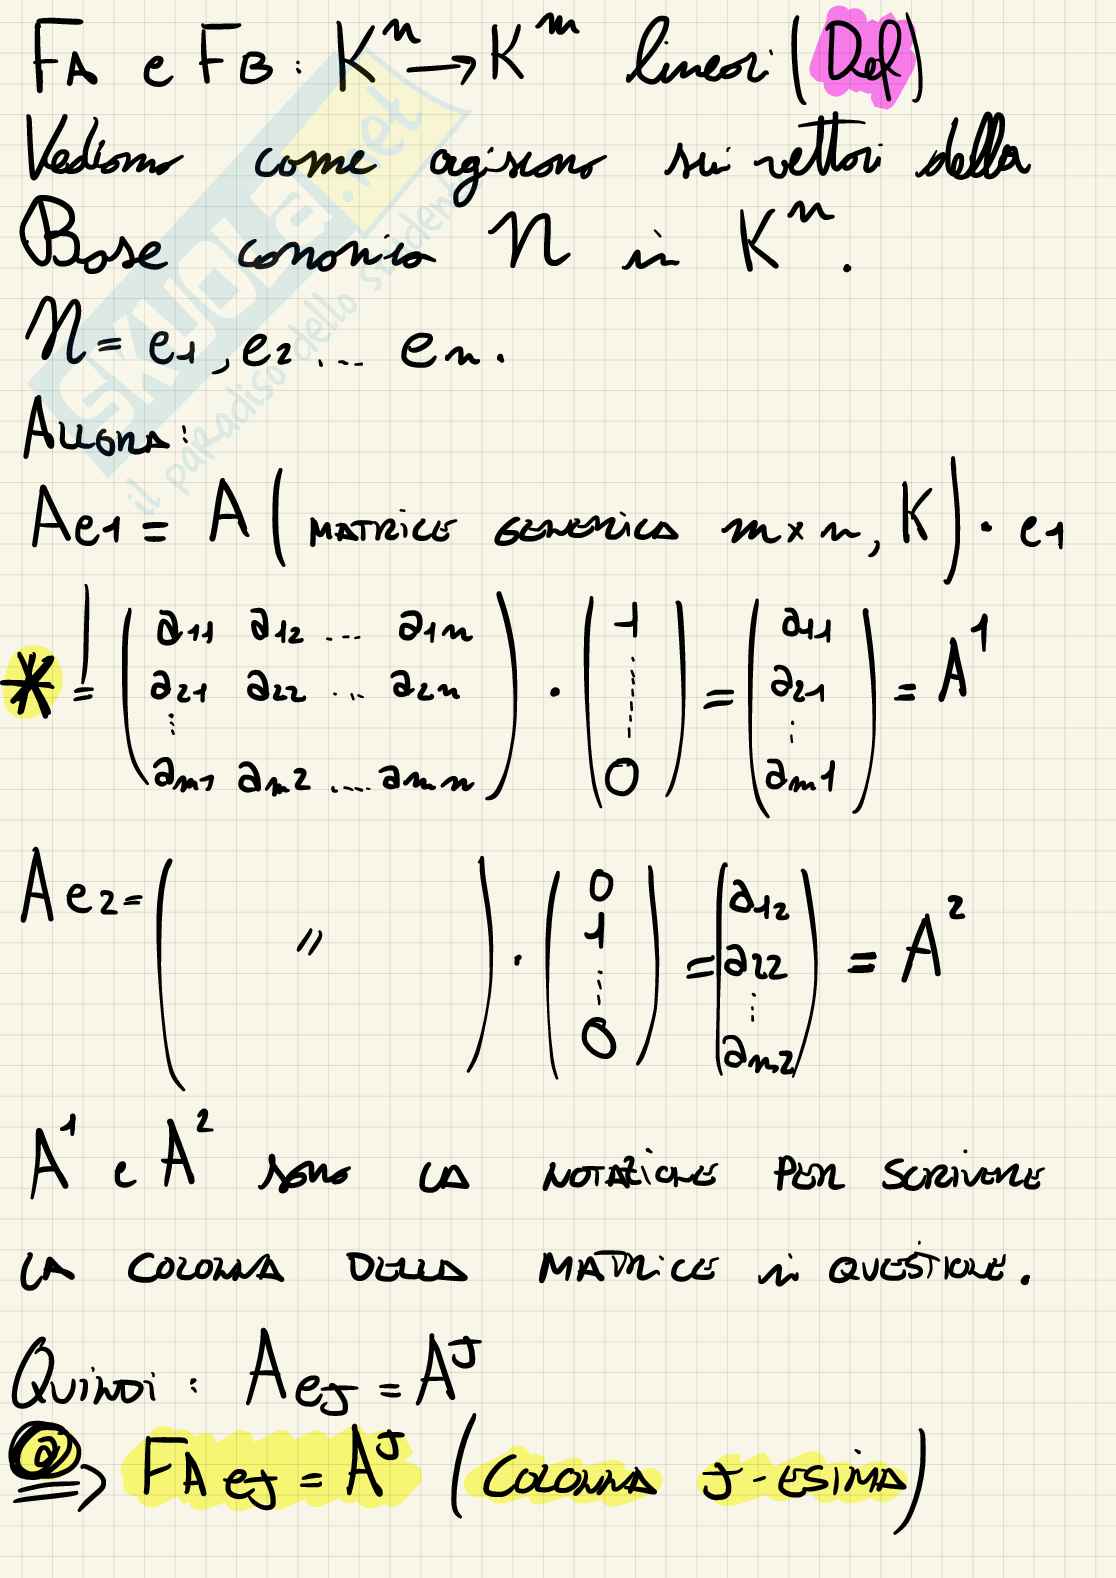 FA e FB: K^n → K^m lineari (Def)
Vediamo come agiscono sui vettori della
Base canonica N in K^n.
N = e1, e2 ... en.
ALLORA:
Ae1 = A (MATRICE GENERICA m x n, K) · e1
* = ( a11 a12 ... a1n ) · ( 1 ) = ( a11 ) = A^1
( a21 a22 ... a2n ) ( ⋮ ) ( a21 )
( ⋮ ) ( ⋮ ) ( ⋮ )
( am1 am2 .... amn ) ( 0 ) ( am1 )
Ae2 = ( " ) · ( 0 ) = ( a12 ) = A^2
( 1 ) ( a22 )
( ⋮ ) ( ⋮ )
( 0 ) ( am2 )
A^1 e A^2 sono LA NOTAZIONE PER SCRIVERE
LA COLONNA DELLA MATRICE in QUESTIONE.
QUINDI: AeJ = A^J
@ → FAeJ = A^J (COLONNA J-ESIMA)
SKUOLA.net
il paradiso dello studen